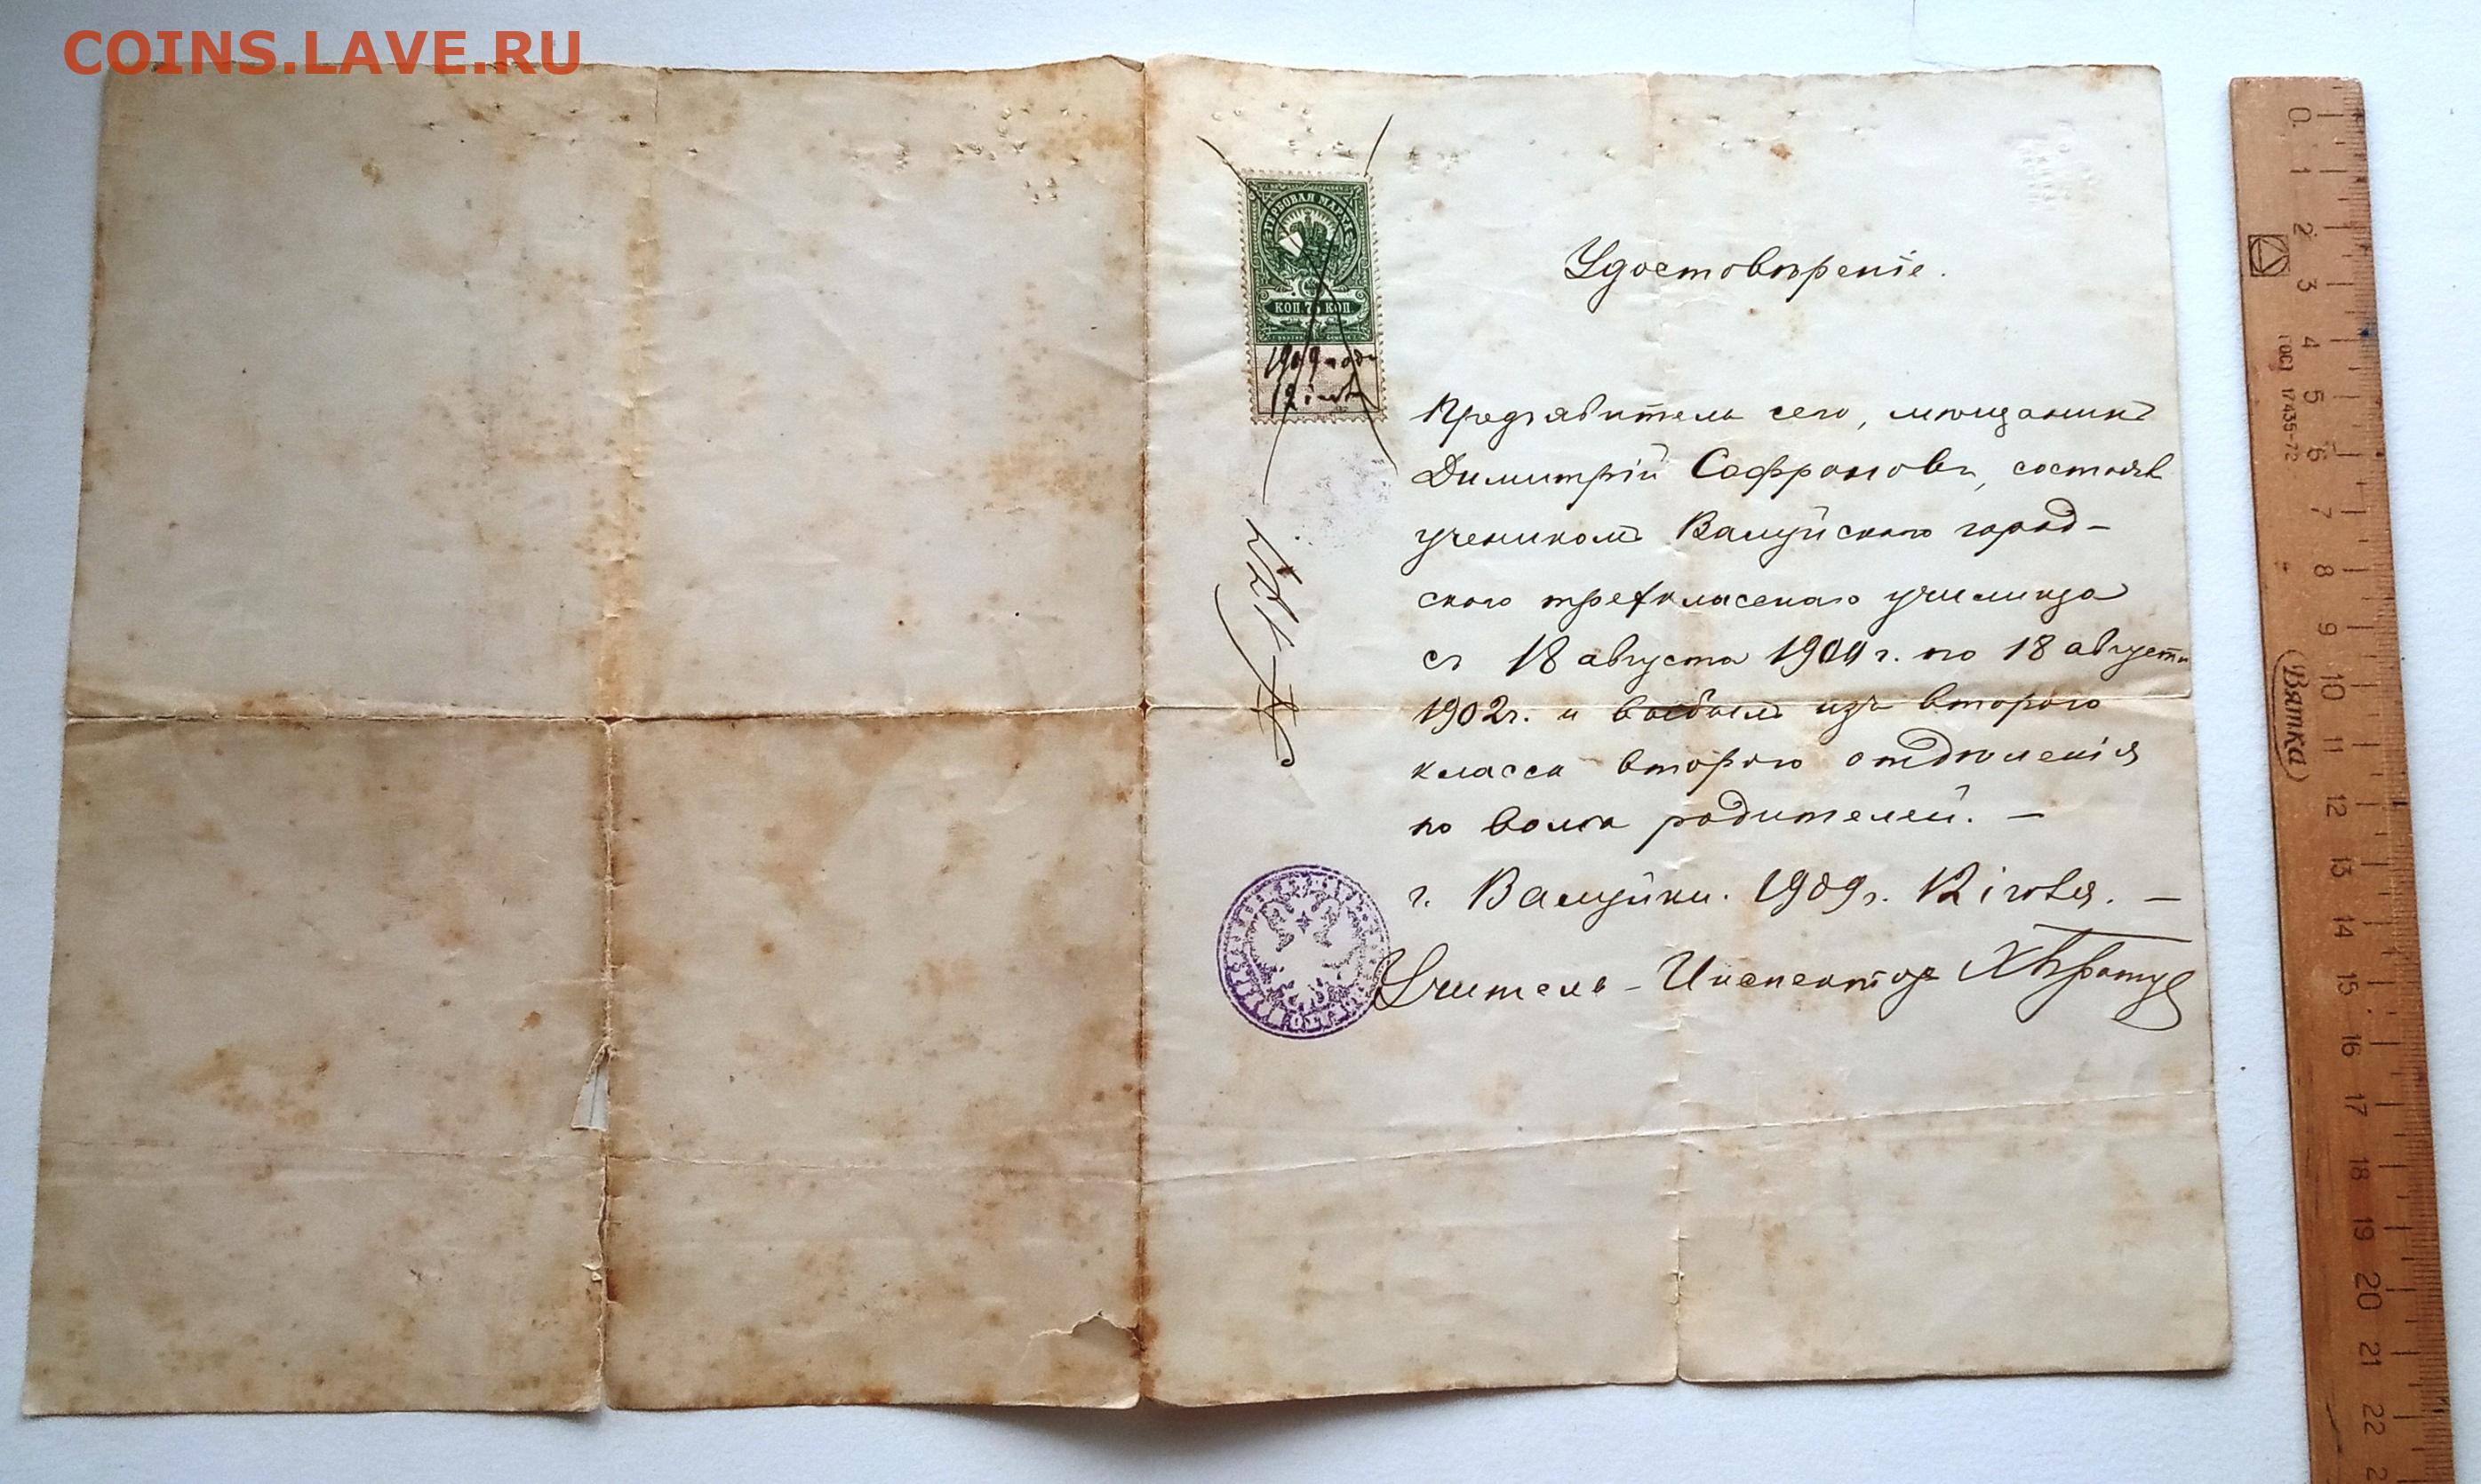 COINS.LAVE.RU
ГЕРБОВАЯ МАРКА
КОП. 75 КОП.
1909 года
12 іюля
Удостовѣреніе.
Предъявитель сего, мѣщанинъ
Димитрій Сафроновъ, состоялъ
ученикомъ Валуйскаго город-
скаго трехкласснаго училища
съ 18 августа 1900 г. по 18 августа
1902 г. и выбылъ изъ второго
класса второго отдѣленія
по волѣ родителей. —
г. Валуйки. 1909 г. 12 іюля. —
Учитель - Инспекторъ
0 1 2 3 4 5 6 7 8 9 10 11 12 13 14 15 16 17 18 19 20 21 22
ГОСТ 17435-72
Вятка